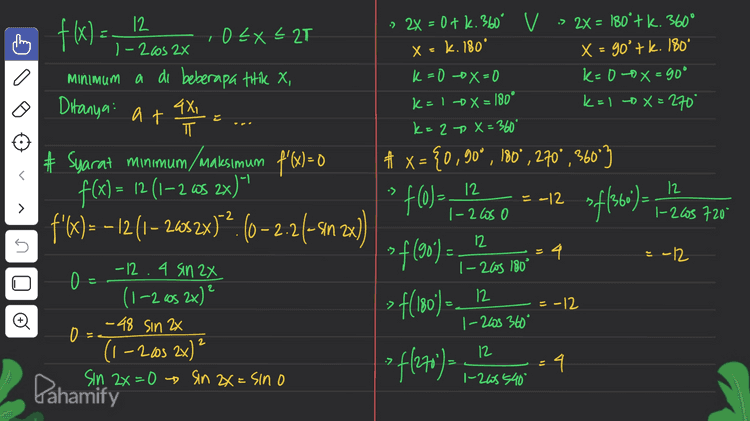 f(x) = 12 / (1 - 2 cos 2x) , 0 ≤ x ≤ 2π
minimum a di beberapa titik x,
Ditanya: a + 4x₁/π = ...
# Syarat minimum/maksimum f'(x) = 0
f(x) = 12 (1 - 2 cos 2x)⁻¹
f'(x) = -12 (1 - 2 cos 2x)⁻² . (0 - 2.2 (-sin 2x))
0 = -12 . 4 sin 2x / (1 - 2 cos 2x)²
0 = -48 sin 2x / (1 - 2 cos 2x)²
sin 2x = 0 → sin 2x = sin 0
Pahamify
> 2x = 0 + k. 360° V > 2x = 180° + k. 360°
x = k. 180° x = 90° + k. 180°
k = 0 → x = 0 k = 0 → x = 90°
k = 1 → x = 180° k = 1 → x = 270°
k = 2 → x = 360°
# x = {0, 90°, 180°, 270°, 360°}
> f(0) = 12 / (1 - 2 cos 0) = -12 > f(360°) = 12 / (1 - 2 cos 720°) = -12
> f(90°) = 12 / (1 - 2 cos 180°) = 4
> f(180°) = 12 / (1 - 2 cos 360°) = -12
> f(270°) = 12 / (1 - 2 cos 540°) = 4